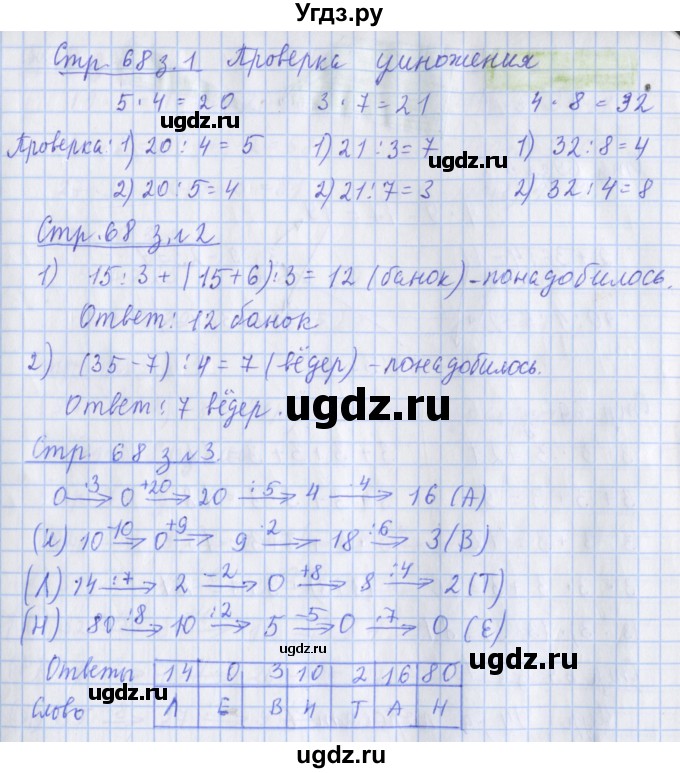 Угдз.ру
Стр. 68 з.1 Проверка умножения
5 · 4 = 20 3 · 7 = 21 4 · 8 = 32
ugdz.ru
Проверка: 1) 20 : 4 = 5 1) 21 : 3 = 7 1) 32 : 8 = 4
ugdz.ru
2) 20 : 5 = 4 2) 21 : 7 = 3 2) 32 : 4 = 8
Стр. 68 з.№2
1) 15 : 3 + (15+6) : 3 = 12 (банок) - понадобилось.
Ответ: 12 банок
2) (35 - 7) : 4 = 7 (вёдер) - понадобилось.
Ответ: 7 вёдер.
ugdz.ru
Стр. 68 з №3.
ugdz.ru
0 ·3→ 0 +20→ 20 :5→ 4 ·4→ 16 (А)
(И) 10 -10→ 0 +9→ 9 ·2→ 18 :6→ 3 (В)
(Л) 14 :7→ 2 -2→ 0 +8→ 8 :4→ 2 (Т)
(Н) 80 :8→ 10 :2→ 5 -5→ 0 :7→ 0 (Е)
ugdz.ru
ugdz.ru
Ответы 14 0 3 10 2 16 80
ugdz.ru
Слово Л Е В И Т А Н
ugdz.ru
ugdz.ru